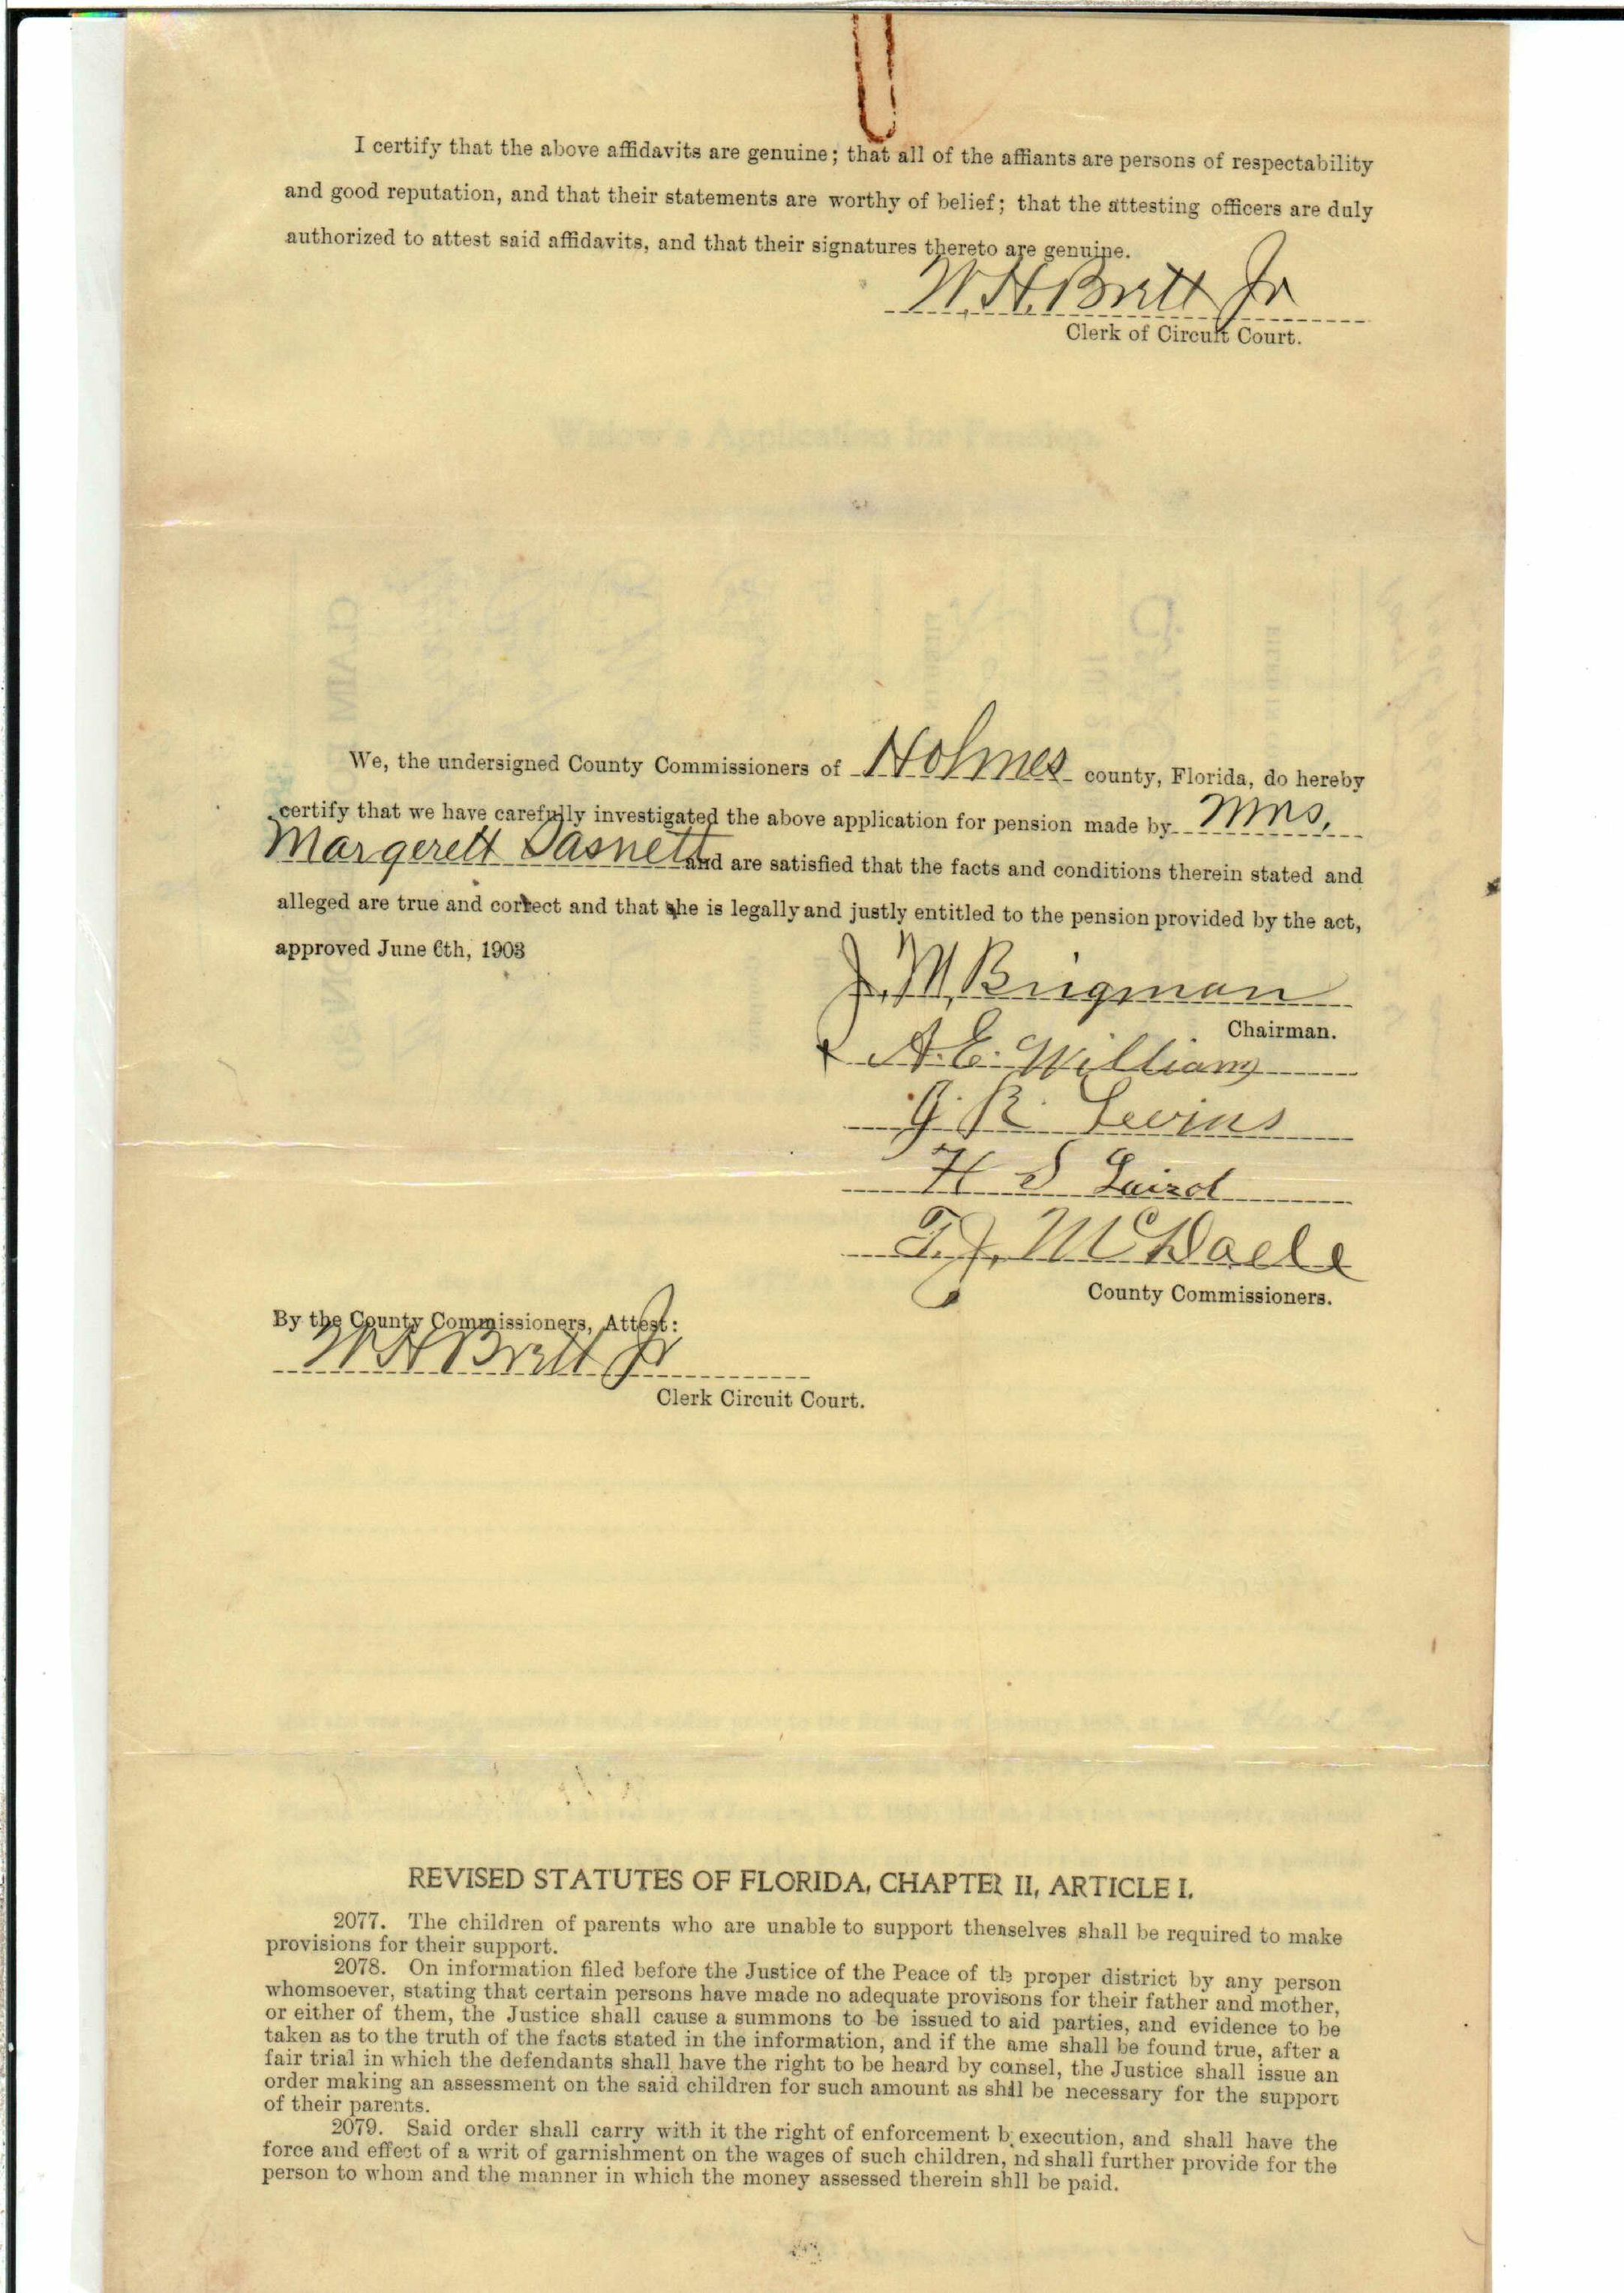 I certify that the above affidavits are genuine; that all of the affiants are persons of respectability
and good reputation, and that their statements are worthy of belief; that the attesting officers are duly
authorized to attest said affidavits, and that their signatures thereto are genuine.
W. H. Brett Jr
Clerk of Circuit Court.
Widow's Application for Pension.
We, the undersigned County Commissioners of Holmes county, Florida, do hereby
certify that we have carefully investigated the above application for pension made by Mrs,
Margerett Sasnett and are satisfied that the facts and conditions therein stated and
alleged are true and correct and that she is legally and justly entitled to the pension provided by the act,
approved June 6th, 1903
J. M. Brigman
Chairman.
A. E. Williams
G. R. Levins
H S Laird
T. J. McDaell
County Commissioners.
By the County Commissioners, Attest:
W H Brett Jr
Clerk Circuit Court.
REVISED STATUTES OF FLORIDA, CHAPTER II, ARTICLE I.
2077. The children of parents who are unable to support themselves shall be required to make
provisions for their support.
2078. On information filed before the Justice of the Peace of th proper district by any person
whomsoever, stating that certain persons have made no adequate provisons for their father and mother,
or either of them, the Justice shall cause a summons to be issued to aid parties, and evidence to be
taken as to the truth of the facts stated in the information, and if the ame shall be found true, after a
fair trial in which the defendants shall have the right to be heard by counsel, the Justice shall issue an
order making an assessment on the said children for such amount as shall be necessary for the support
of their parents.
2079. Said order shall carry with it the right of enforcement b execution, and shall have the
force and effect of a writ of garnishment on the wages of such children, nd shall further provide for the
person to whom and the manner in which the money assessed therein shll be paid.